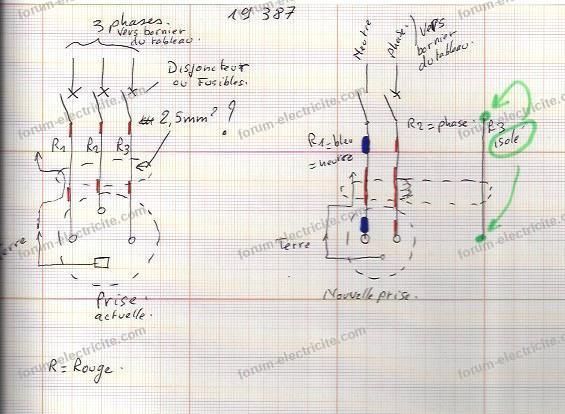 19 387
3 phases.
vers bornier
du tableau.
Disjoncteur
ou Fusibles.
2,5mm² ?
R1
R2
R3
Terre
Prise
actuelle.
R = Rouge.
Neutre
phase
vers
bornier
du tableau.
R1 = bleu
= neutre
R2 = phase.
R3
isolé
Terre
Nouvelle prise.
forum-electricite.com
forum-electricite.com
forum-electricite.com
forum-electricite.com
forum-electricite.com
forum-electricite.com
forum-electricite.com
forum-electricite.com
forum-electricite.com
forum-electricite.com